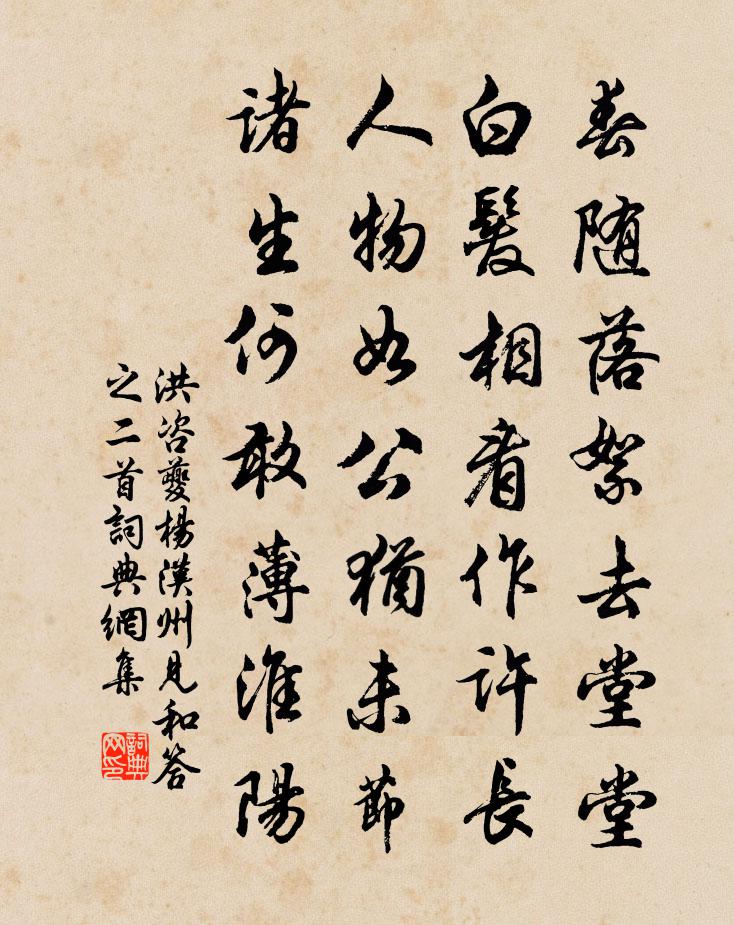 春随落絮去堂堂
白髮相看作許長
人物如公猶未節
諸生何敢薄淮陽
洪咨夔楊漢州見和答
之二首詞典網集
詞典网印